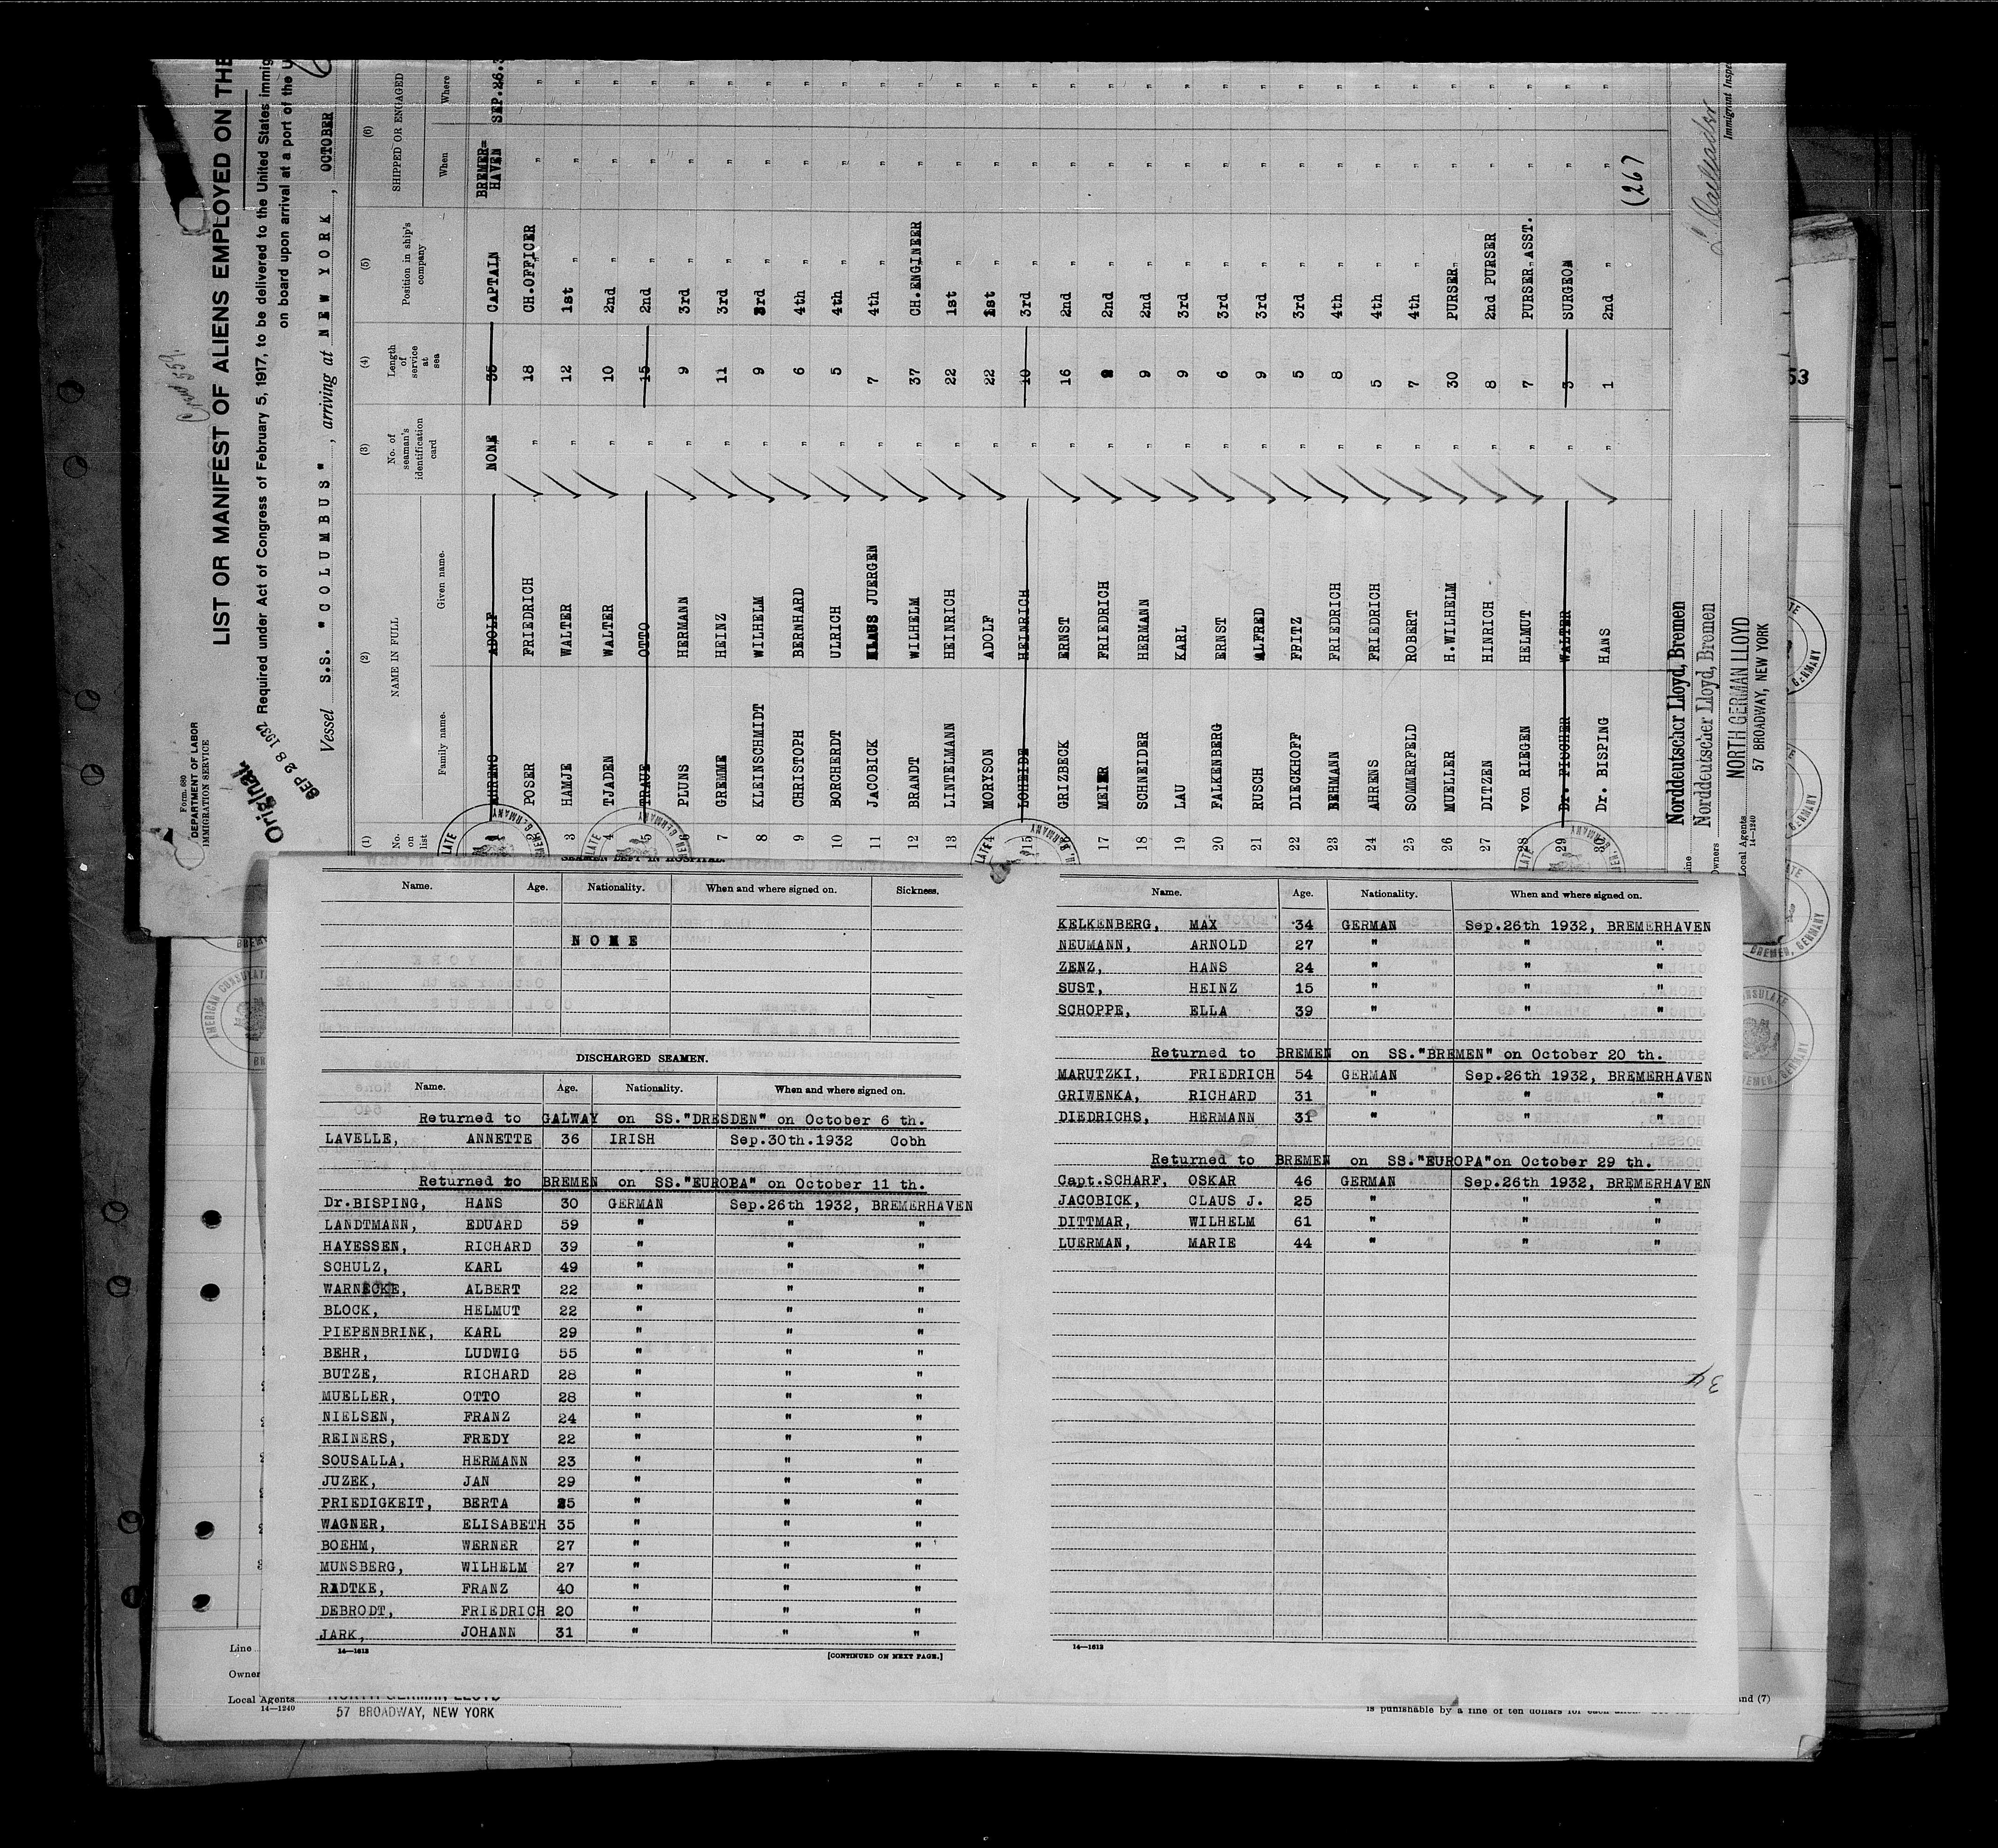 Form 689
DEPARTMENT OF LABOR
IMMIGRATION SERVICE
Original
SEP 28 1932
LIST OR MANIFEST OF ALIENS EMPLOYED ON THE
Required under Act of Congress of February 5, 1917, to be delivered to the United States immig
on board upon arrival at a port of the U
Vessel S.S. "COLUMBUS", arriving at NEW YORK, OCTOBER
(1) (2) (3) (4) (5) (6)
No. on list NAME IN FULL No. of seaman's identification card Length of service at sea Position in ship's company SHIPPED OR ENGAGED
Family name. Given name. When Where
AHRENS ADOLF NONE 35 CAPTAIN BREMER=HAVEN SEP.26.3
2 POSER FRIEDRICH " 18 CH.OFFICER " "
3 HAMJE WALTER " 12 1st " " "
4 TJADEN WALTER " 10 2nd " " "
5 TRAUE OTTO " 15 2nd " " "
6 PLUNS HERMANN " 9 3rd " " "
7 GREMME HEINZ " 11 3rd " " "
8 KLEINSCHMIDT WILHELM " 9 3rd " " "
9 CHRISTOPH BERNHARD " 6 4th " " "
10 BORCHERDT ULRICH " 5 4th " " "
11 JACOBICK KLAUS JUERGEN " 7 4th " " "
12 BRANDT WILHELM " 37 CH.ENGINEER " "
13 LINTELMANN HEINRICH " 22 1st " " "
14 MORYSON ADOLF " 22 1st " " "
15 LOHEIDE HEINRICH " 10 3rd " " "
16 GRIZBECK ERNST " 16 2nd " " "
17 MEIER FRIEDRICH " 2nd " " "
18 SCHNEIDER HERMANN " 9 2nd " " "
19 LAU KARL " 9 3rd " " "
20 FALKENBERG ERNST " 6 3rd " " "
21 RUSCH ALFRED " 9 3rd " " "
22 DIECKHOFF FBITZ " 5 3rd " " "
23 BEHMANN FRIEDRICH " 8 4th " " "
24 AHRENS FRIEDRICH " 5 4th " " "
25 SOMMERFELD ROBERT " 7 4th " " "
26 MUELLER H.WILHELM " 30 PURSER " "
27 DITZEN HINRICH " 8 2nd PURSER " "
28 von RIEGEN HELMUT " 7 PURSER ASST. " "
29 Dr. FISCHER WALTER " 3 SURGEON " "
30 Dr. BISPING HANS " 1 2nd " " "
(267
Line Norddeutscher Lloyd, Bremen
Owners Norddeutscher Lloyd, Bremen
Local Agents NORTH GERMAN LLOYD
14—1240 57 BROADWAY, NEW YORK
Immigrant Inspe
53
SEAMEN LEFT IN HOSPITAL.
Name. Age. Nationality. When and where signed on. Sickness.
NONE
DISCHARGED SEAMEN.
Name. Age. Nationality. When and where signed on.
Returned to GALWAY on SS."DRESDEN" on October 6 th.
LAVELLE, ANNETTE 36 IRISH Sep.30th.1932 Cobh
Returned to BREMEN on SS."EUROPA" on October 11 th.
Dr.BISPING, HANS 30 GERMAN Sep.26th 1932, BREMERHAVEN
LANDTMANN, EDUARD 59 " " "
HAYESSEN, RICHARD 39 " " "
SCHULZ, KARL 49 " " "
WARNECKE, ALBERT 22 " " "
BLOCK, HELMUT 22 " " "
PIEPENBRINK, KARL 29 " " "
BEHR, LUDWIG 55 " " "
BUTZE, RICHARD 28 " " "
MUELLER, OTTO 28 " " "
NIELSEN, FRANZ 24 " " "
REINERS, FREDY 22 " " "
SOUSALLA, HERMANN 23 " " "
JUZEK, JAN 29 " " "
PRIEDIGKEIT, BERTA 25 " " "
WAGNER, ELISABETH 35 " " "
BOEHM, WERNER 27 " " "
MUNSBERG, WILHELM 27 " " "
RADTKE, FRANZ 40 " " "
DEBRODT, FRIEDRICH 20 " " "
JARK, JOHANN 31 " " "
14—1613 [CONTINUED ON NEXT PAGE.]
Name. Age. Nationality. When and where signed on.
KELKENBERG, MAX 34 GERMAN Sep.26th 1932, BREMERHAVEN
NEUMANN, ARNOLD 27 " " "
ZENZ, HANS 24 " " "
SUST, HEINZ 15 " " "
SCHOPPE, ELLA 39 " " "
Returned to BREMEN on SS."BREMEN" on October 20 th.
MARUTZKI, FRIEDRICH 54 GERMAN Sep.26th 1932, BREMERHAVEN
GRIWENKA, RICHARD 31 " " "
DIEDRICHS, HERMANN 31 " " "
Returned to BREMEN on SS."EUROPA"on October 29 th.
Capt.SCHARF, OSKAR 46 GERMAN Sep.26th 1932, BREMERHAVEN
JACOBICK, CLAUS J. 25 " " "
DITTMAR, WILHELM 61 " " "
LUERMAN, MARIE 44 " " "
34
14—1613
Line
Owner
Local Agents NORTH GERMAN LLOYD
14—1240
57 BROADWAY, NEW YORK
is punishable by a fine of ten dollars for each
and (7)
AMERICAN CONSULATE
BREMEN, GERMANY